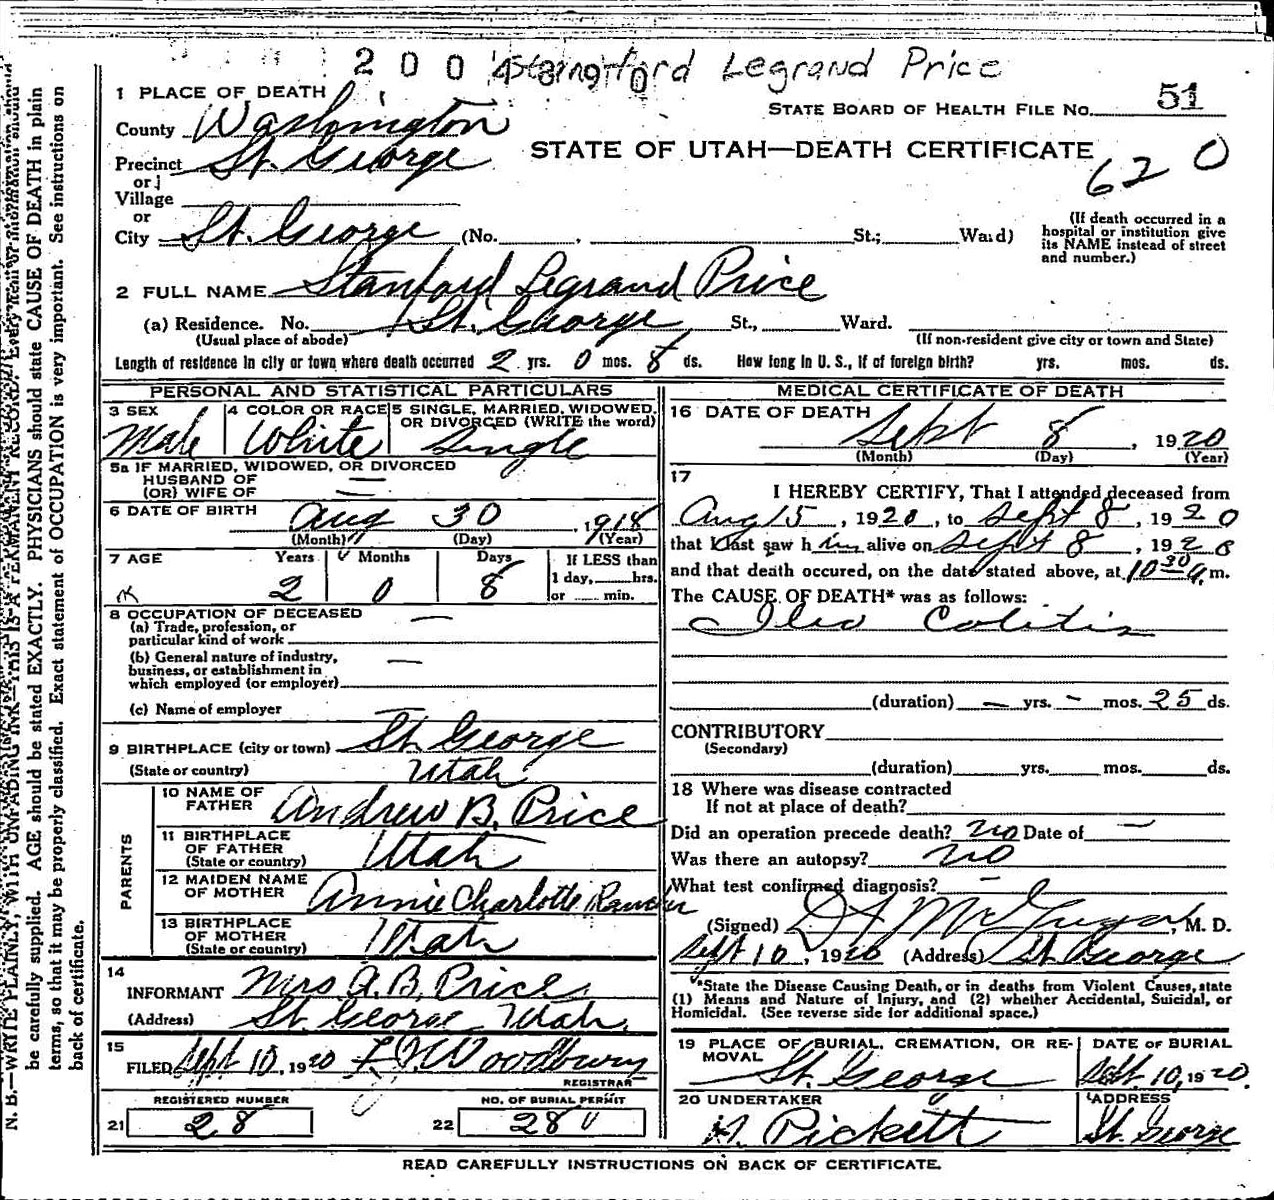 2 0 0 4
Stanford Legrand Price
1 PLACE OF DEATH
STATE BOARD OF HEALTH FILE No. 51
County Washington
Precinct St. George
STATE OF UTAH—DEATH CERTIFICATE
620
or
Village
or
City St. George (No. , St.; Ward)
(If death occurred in a
hospital or institution give
its NAME instead of street
and number.)
2 FULL NAME Stanford Legrand Price
(a) Residence. No. St. George St., Ward.
(Usual place of abode)
(If non-resident give city or town and State)
Length of residence in city or town where death occurred 2 yrs. 0 mos. 8 ds. How long in U. S., if of foreign birth? yrs. mos. ds.
PERSONAL AND STATISTICAL PARTICULARS
3 SEX
Male
4 COLOR OR RACE
White
5 SINGLE, MARRIED, WIDOWED,
OR DIVORCED (WRITE the word)
Single
5a IF MARRIED, WIDOWED, OR DIVORCED
HUSBAND OF —
(OR) WIFE OF —
6 DATE OF BIRTH Aug 30, 1918
(Month) (Day) (Year)
7 AGE Years Months Days
2 0 8
If LESS than
1 day, hrs.
or min.
8 OCCUPATION OF DECEASED
(a) Trade, profession, or
particular kind of work —
(b) General nature of industry,
business, or establishment in
which employed (or employer) —
(c) Name of employer —
9 BIRTHPLACE (city or town) St. George
(State or country) Utah
PARENTS
10 NAME OF
FATHER Andrew B. Price
11 BIRTHPLACE
OF FATHER
(State or country) Utah
12 MAIDEN NAME
OF MOTHER Annie Charlotte
13 BIRTHPLACE
OF MOTHER
(State or country) Utah
14
INFORMANT Mrs A. B. Price
(Address) St. George Utah
15
FILED Sept 10, 1920 Woodbury
REGISTRAR
REGISTERED NUMBER
21 28
NO. OF BURIAL PERMIT
22 28
MEDICAL CERTIFICATE OF DEATH
16 DATE OF DEATH
Sept 8, 1920
(Month) (Day) (Year)
17
I HEREBY CERTIFY, That I attended deceased from
Aug 15, 1920, to Sept 8, 1920
that I last saw him alive on Sept 8, 1920
and that death occured, on the date stated above, at 10 30 a.m.
The CAUSE OF DEATH* was as follows:
Ileo Colitis
(duration) — yrs. – mos. 25 ds.
CONTRIBUTORY
(Secondary)
(duration) yrs. mos. ds.
18 Where was disease contracted
If not at place of death?
Did an operation precede death? no Date of —
Was there an autopsy? no
What test confirmed diagnosis? —
(Signed) M. D.
Sept 10, 1920 (Address) St George
*State the Disease Causing Death, or in deaths from Violent Causes, state
(1) Means and Nature of Injury, and (2) whether Accidental, Suicidal, or
Homicidal. (See reverse side for additional space.)
19 PLACE OF BURIAL, CREMATION, OR RE-
MOVAL
St. George
DATE OF BURIAL
Sept. 10, 1920.
20 UNDERTAKER
Pickett
ADDRESS
St. George
READ CAREFULLY INSTRUCTIONS ON BACK OF CERTIFICATE.
N. B.—WRITE PLAINLY, WITH UNFADING INK—THIS IS A PERMANENT RECORD. Every item of information should
be carefully supplied. AGE should be stated EXACTLY. PHYSICIANS should state CAUSE OF DEATH in plain
terms, so that it may be properly classified. Exact statement of OCCUPATION is very important. See instructions on
back of certificate.